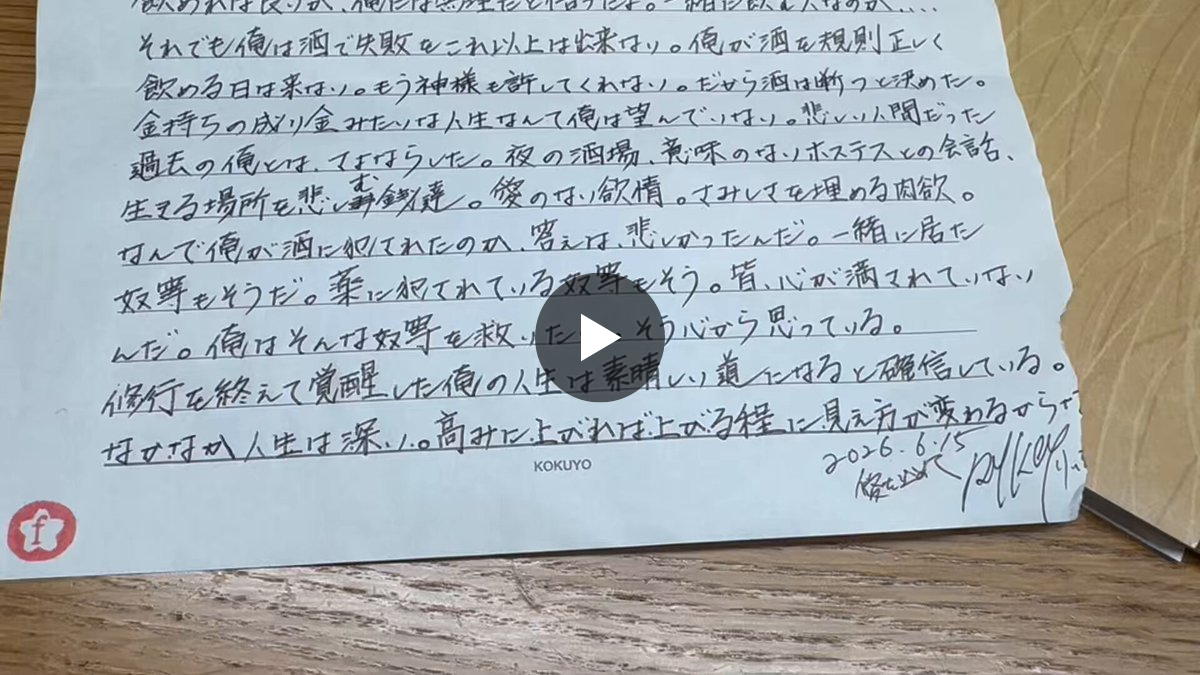 飲めれば良いが、俺には無理だと悟ったよ。一緒に飲む人なのか....
それでも俺は酒で失敗をこれ以上は出来ない。俺が酒を規則正しく
飲める日は来ない。もう神様も許してくれない。だから酒は断つと決めた。
金持ちの成り金みたいな人生なんて俺は望んでいない。悲しい人間だった
過去の俺とは、さよならした。夜の酒場、意味のないホステスとの会話、
生きる場所を悲しむ 達。愛のない欲情。さみしさを埋める肉欲。
なんで俺が酒に犯されたのか、答えは、悲しかったんだ。一緒に居た
奴等もそうだ。薬に犯されている奴等もそう。皆、心が満されていない
んだ。俺はそんな奴等を救いた そう心から思っている。
修行を終えて覚醒した俺の人生は素晴しい道になると確信している。
なかなか人生は深い。高みに上がれば上がる程に見え方が変わるからさ
2026.6.15
愛を込めて
KOKUYO
f